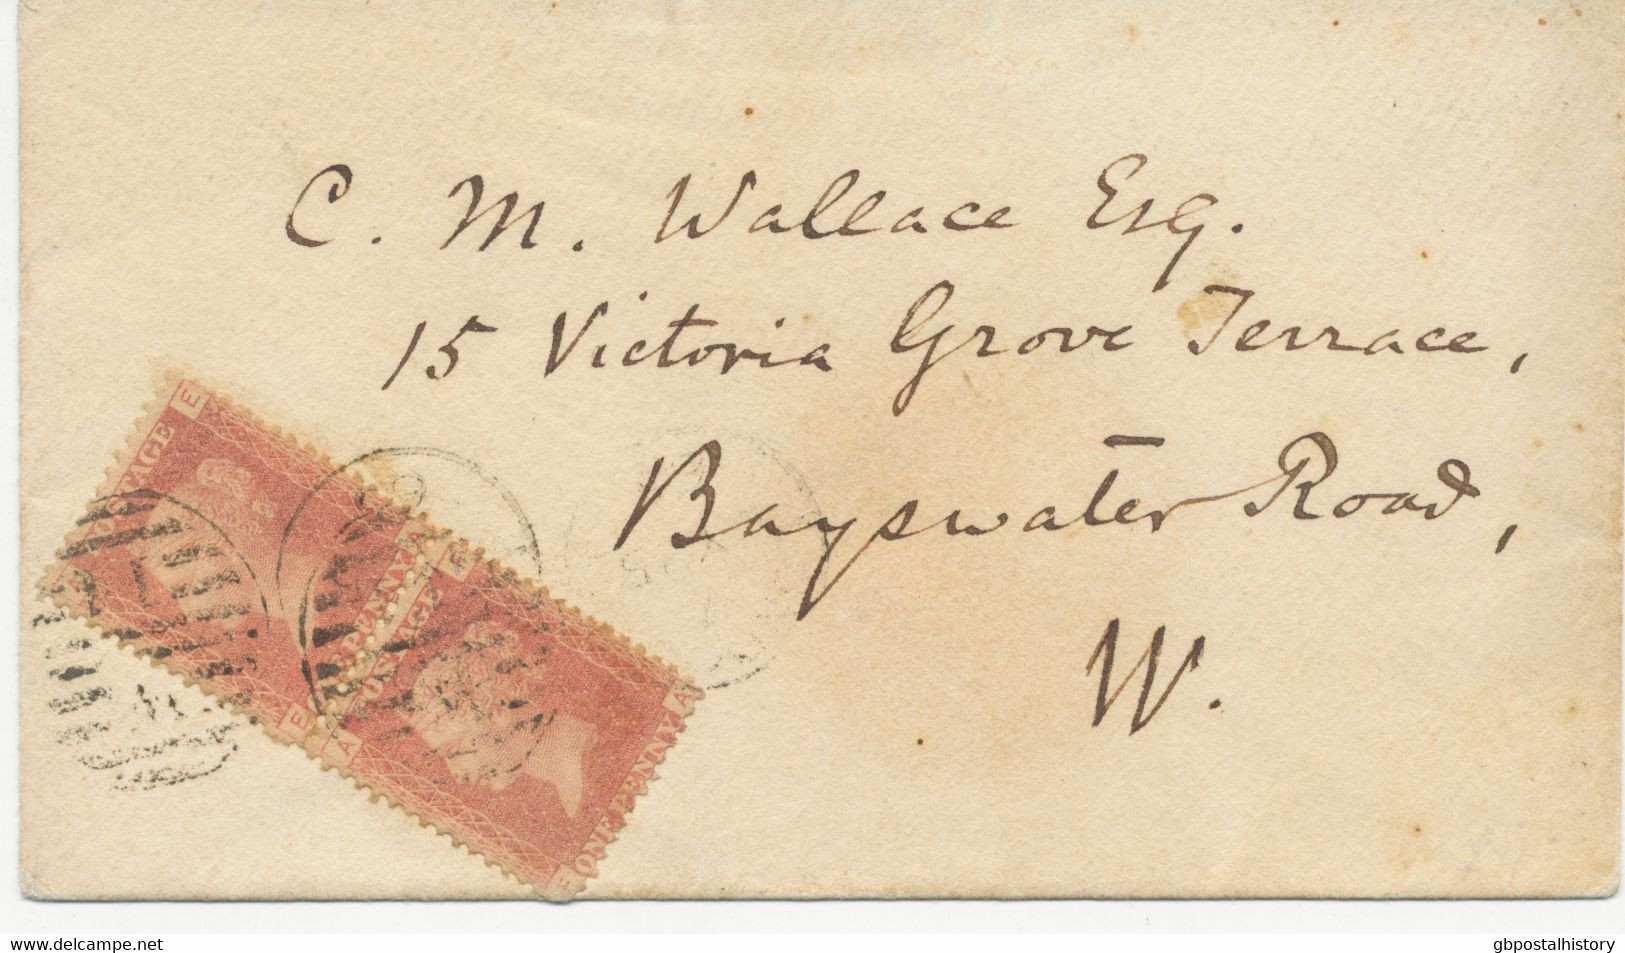 C. M. Wallace Esq.
15 Victoria Grove Terrace,
Bayswater Road,
W.
E
POSTAGE
PENNY
A
E
F
POSTAGE
A
A
ONE PENNY
F
www.delcampe.net
gbpostalhistory